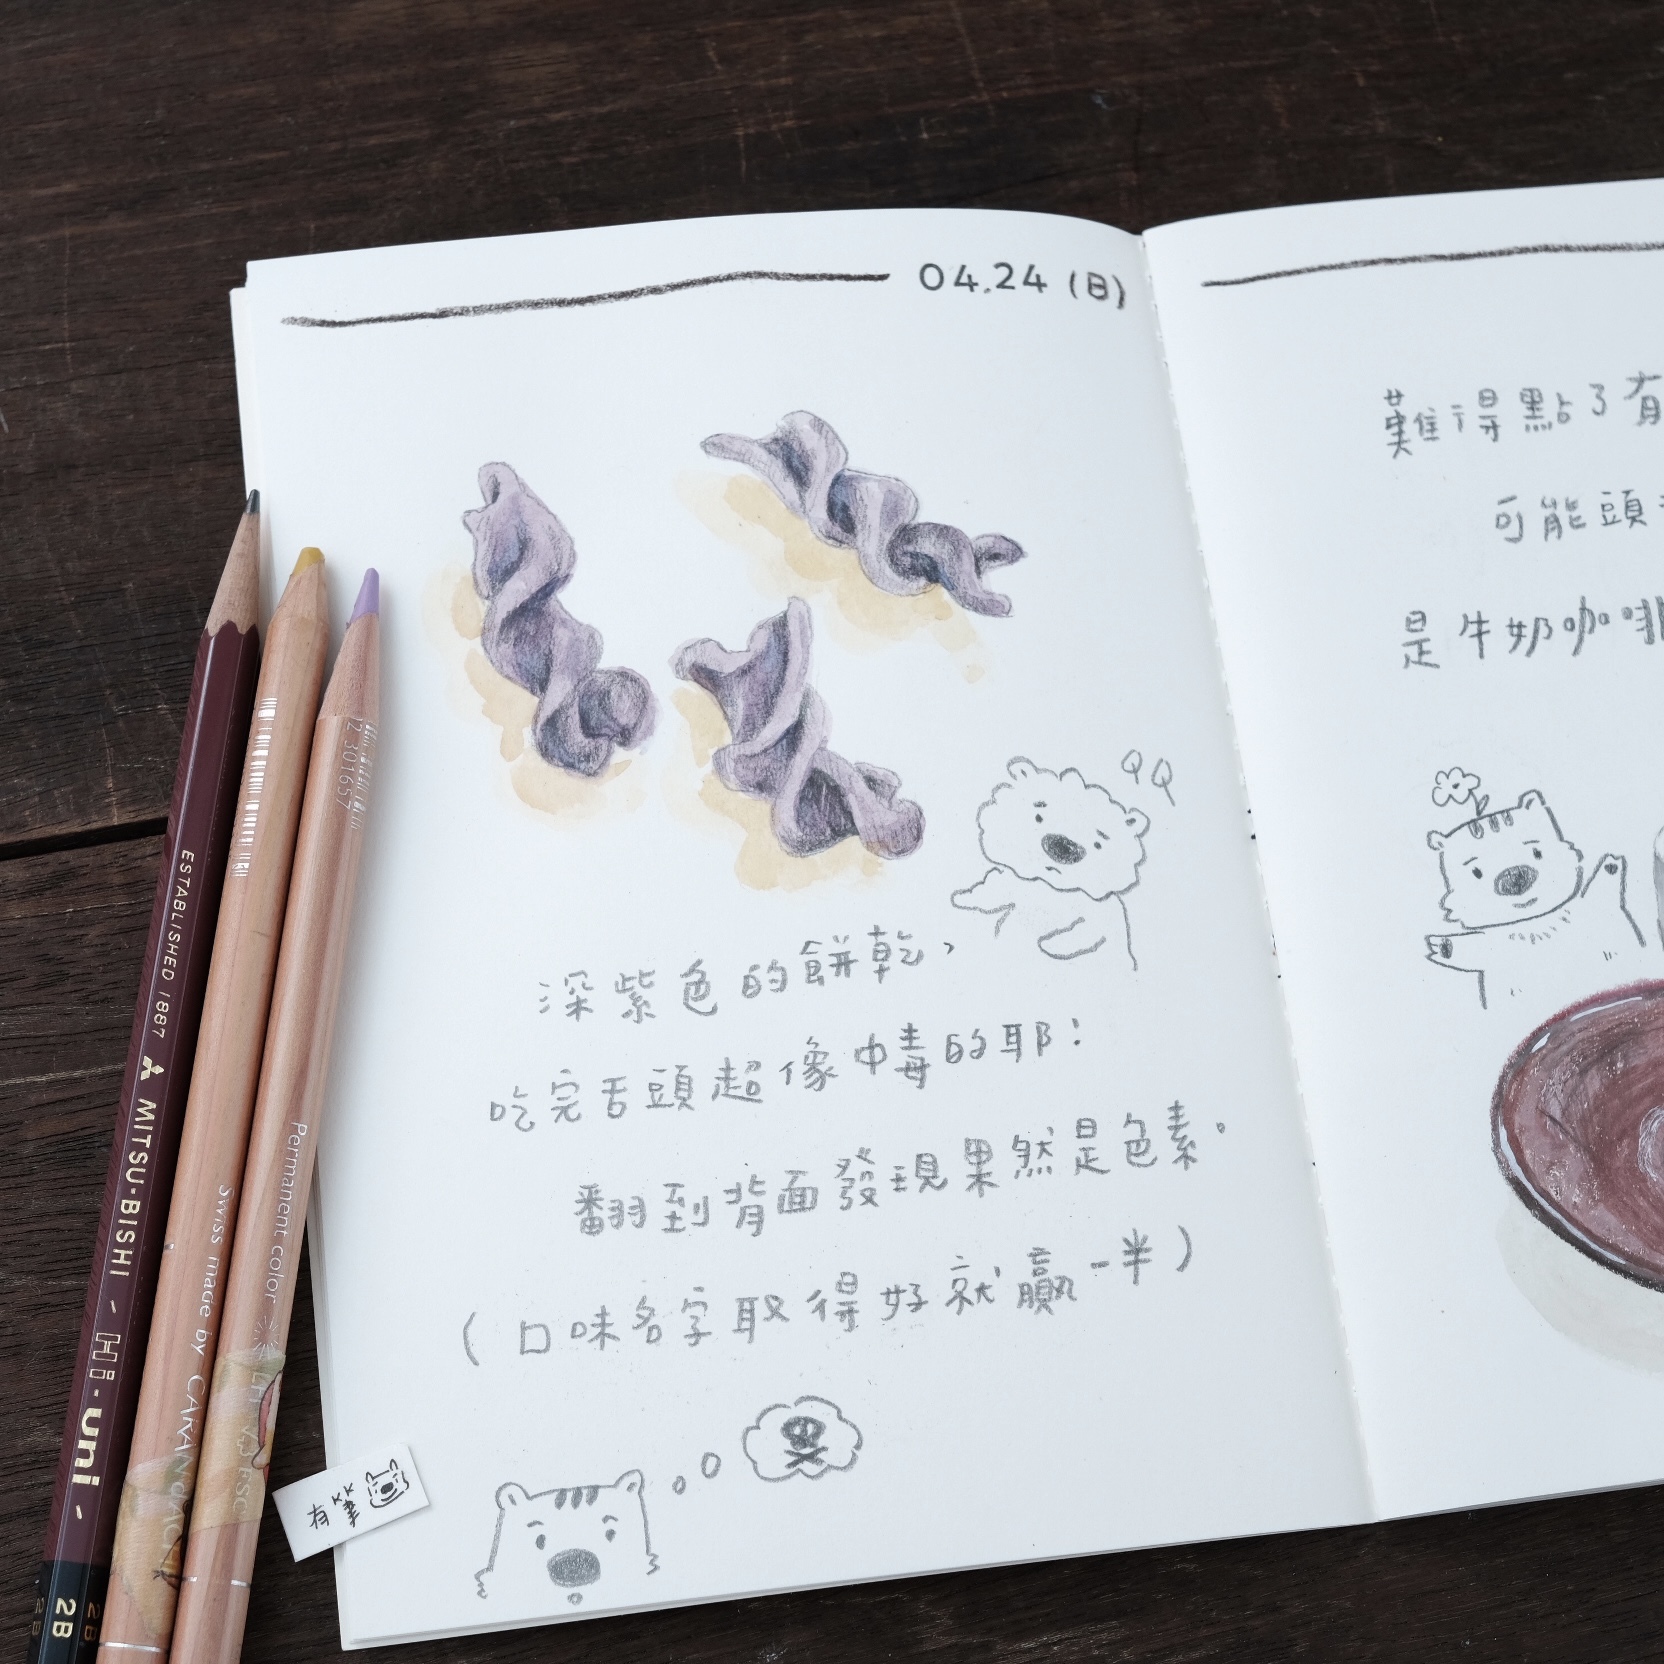 04.24 (日)
深紫色的餅乾，
吃完舌頭超像中毒的耶：
翻到背面發現果然是色素。
(口味名字取得好就贏一半)
QQ
難得點了有
可能頭
是牛奶咖啡
有筆
ESTABLISHED 1887 MITSU-BISHI - Hi-uni - 2B
Swiss made by CARAN d'ACHE
Permanent color FSC
12 301657